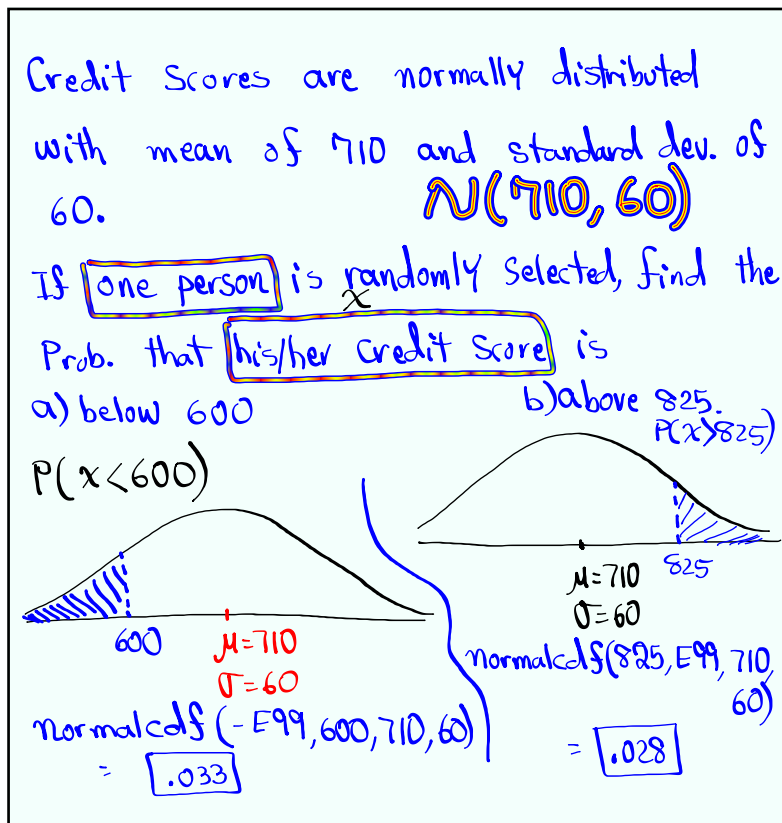 Credit Scores are normally distributed
with mean of 710 and standard dev. of
60.
N(710, 60)
If one person is randomly selected, find the
x
Prob. that his/her Credit Score is
a) below 600
b) above 825.
P(x<600)
600
μ=710
σ=60
normalcdf(-E99, 600, 710, 60)
= .033
P(x>825)
825
μ=710
σ=60
normalcdf(825, E99, 710,
60)
= .028